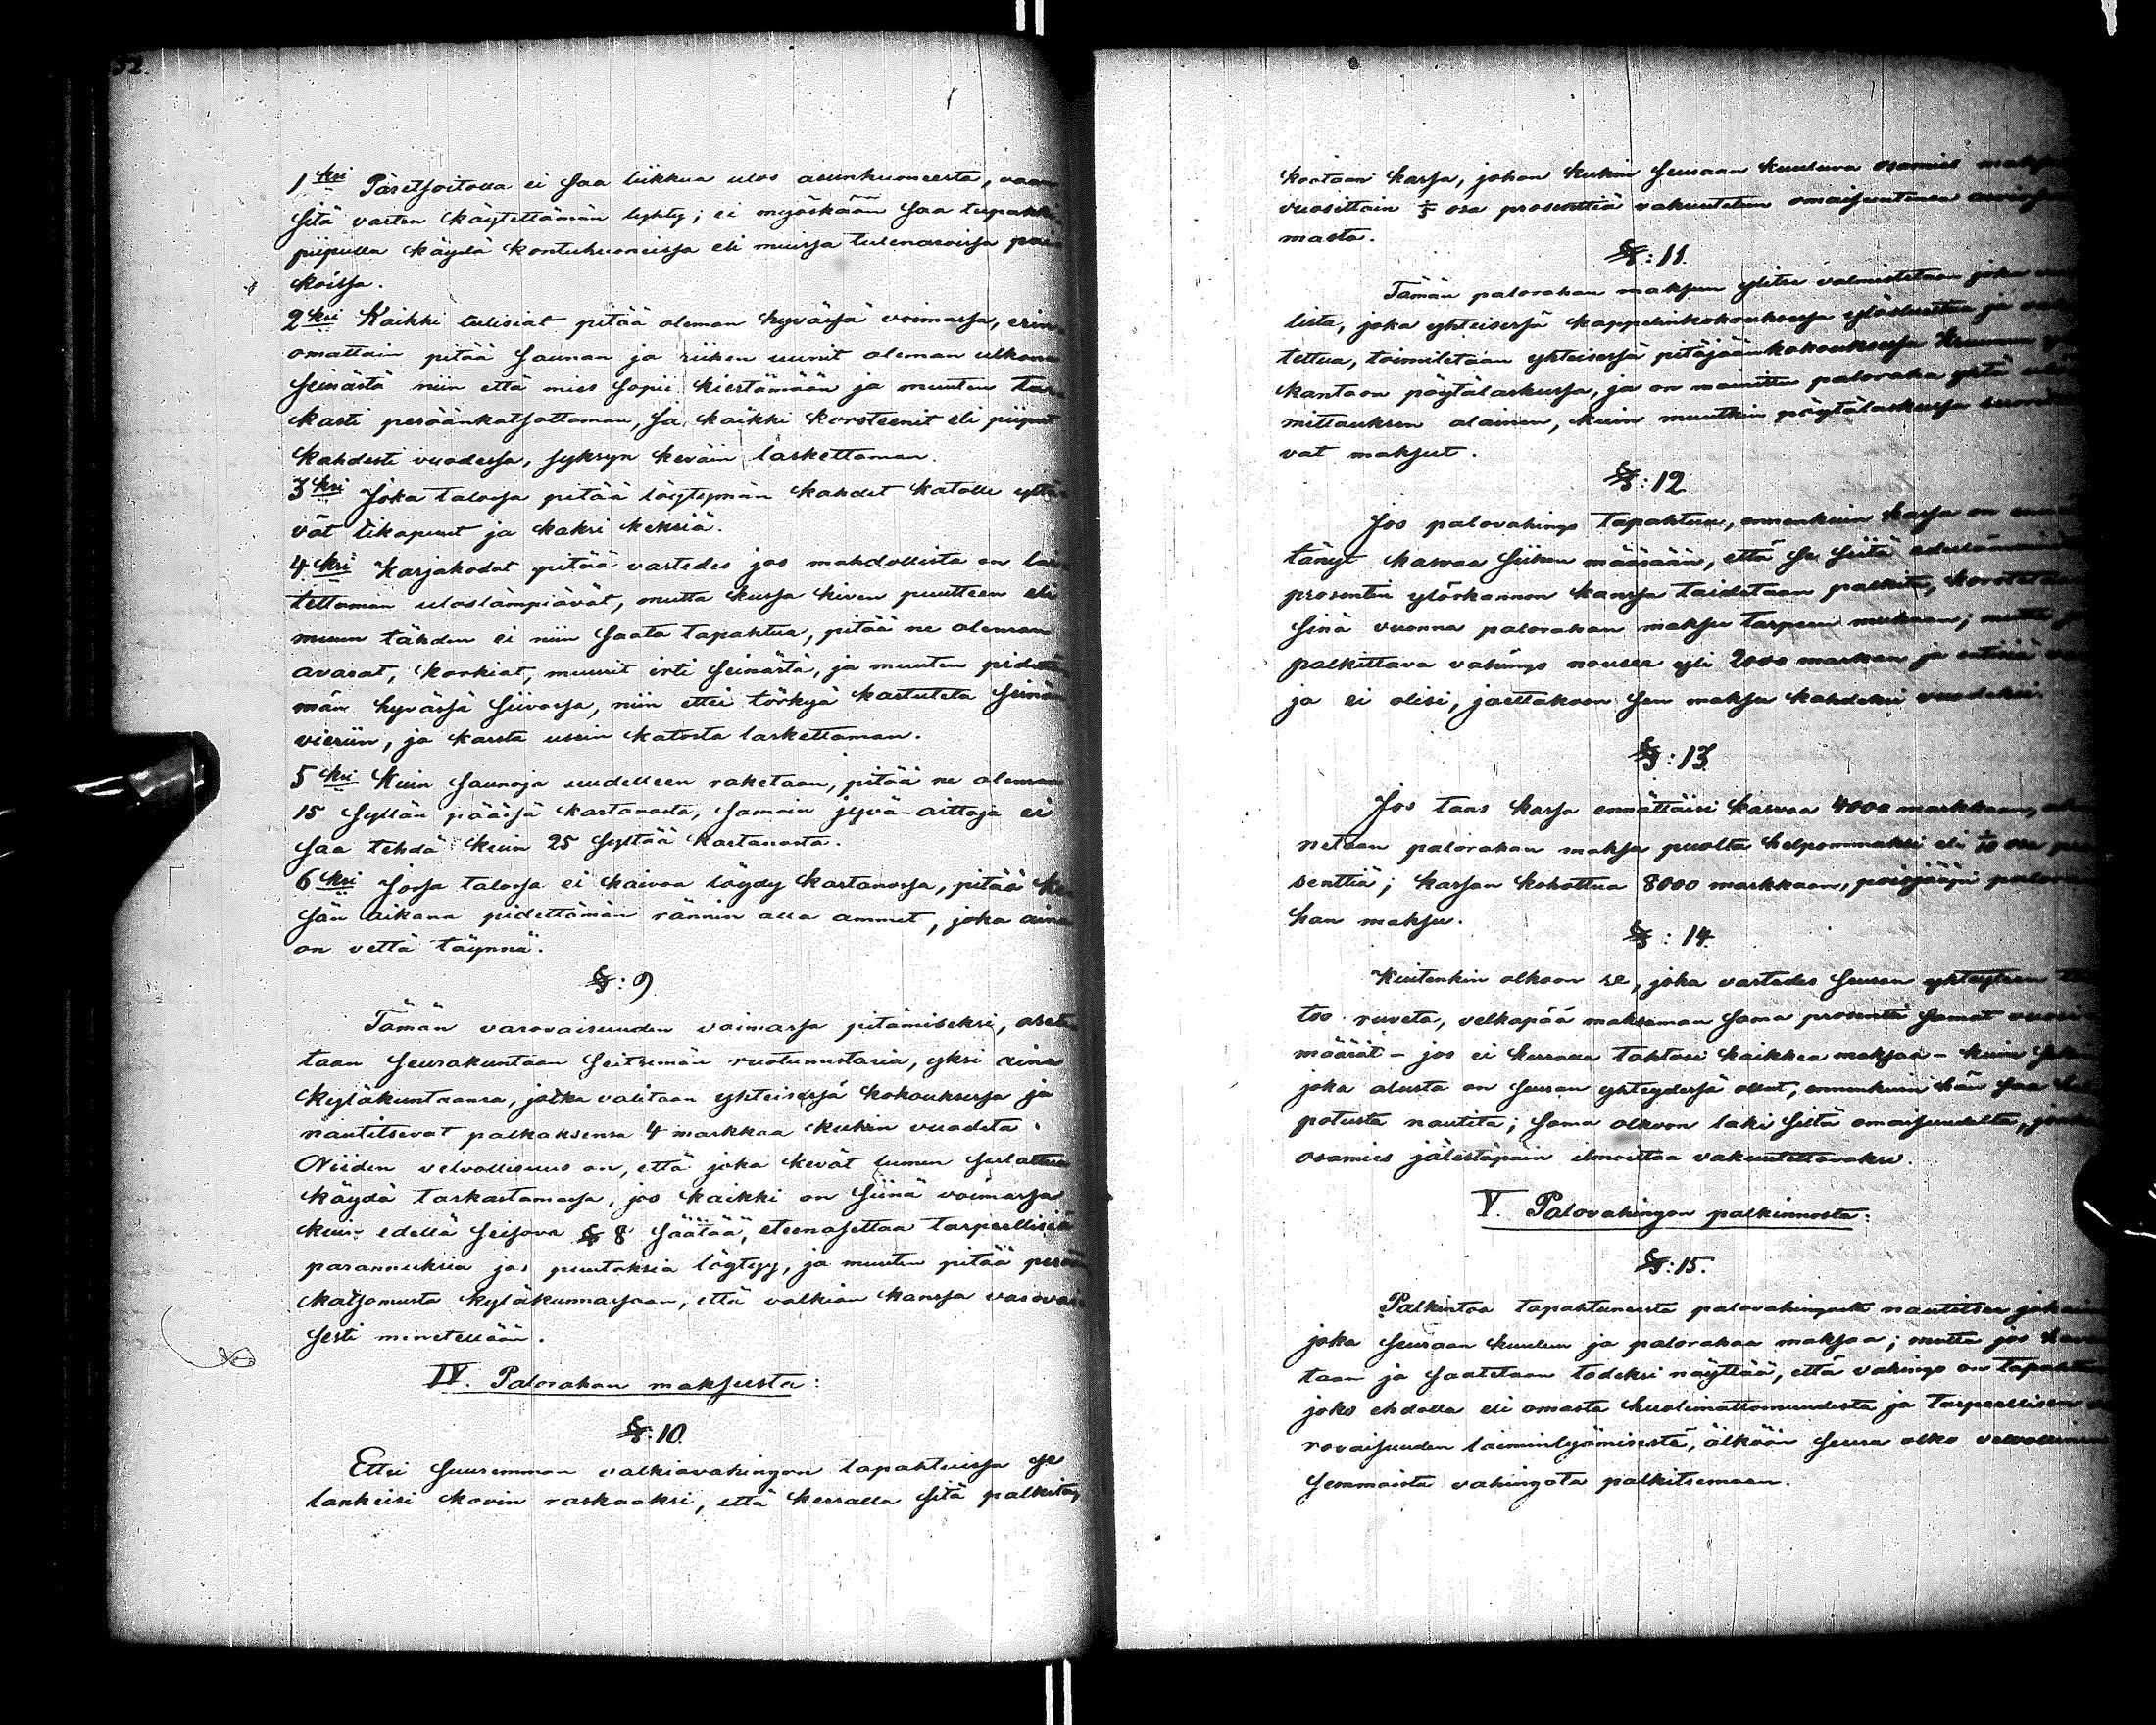 52.
1ksi Päretsoitolla ei saa liikkua ulos asunhuoneesta, vaan
sitä varten käytettämän lyhty; ei myöskään saa tupakki
piipulla käydä kontuhuoneissa eli muissa tulenaroissa pai-
koissa.
2ksi Kaikki tulisiat pitää oleman hyvässä voimassa, erin-
omattain pitää saunan ja riihen uunit oleman ulkona
seinästä niin että mies sopii kiertämään ja muuten tar-
kasti peräänkatsottaman, ja kaikki korsteenit eli piiput
kahdesti vuodessa, syksyn keväin laskettaman.
3ksi Joka talossa pitää löytymän kahdet katolle yltä-
vät tikapuut ja kaksi keksiä.
4ksi Karjakodat pitää vastedes jos mahdollista on lai-
tettaman uloslämpiävät, mutta kussa kiven puutteen eli
muun tähden ei niin saata tapahtua, pitää ne oleman
avarat, korkiat, muurit irti seinästä, ja muuten pidettä-
män hyvässä siivossa, niin ettei törkyä kastuteta seinän
vieriin, ja karsta usein katosta laskettaman.
5ksi Kuin saunoja uudelleen raketaan, pitää ne oleman
15 syllän päässä kartanosta, samoin jyvä-aittoja ei
saa tehdä kuin 25 syltää kartanosta.
6ksi Jossa talossa ei kaivoa löydy kartanossa, pitää ke-
sän aikana pidettämän rännin alla ammet, joka aina
on vettä täynnä.
§: 9
Tämän varovaisuuden voimassa pitämiseksi, asete-
taan seurakuntaan seitsemän ruotumestaria, yksi aina
kyläkuntaansa, jotka valitaan yhteisessä kokouksessa ja
nautitsevat palkaksensa 4 markkaa kukin vuodeta.
Niiden velvollisuus on, että joka kevät lumen sulattua
käydä tarkastamassa, jos kaikki on siinä voimassa
kuin edellä seisova § 8 säätää, eteenasettaa tarpeellisia
parannuksia jos puutoksia löytyy, ja muuten pitää perään
katsomusta kyläkunnassaan, että valkian kanssa varovai-
sesti menetellään.
IV. Palorahan maksusta:
§: 10.
Ettei suuremman valkiavahingon tapahtuissa se
lankeisi kovin raskaaksi, että kerralla sitä palkita,
kootaan kassa, johon kukin seuraan kuuluva osamies maksaa
vuosittain 1/5 osa prosenttia vakuutetun omaisuutensa arvios-
masta.
§: 11.
Tämän palorahan maksun ylitse valmistetaan joka
lista, joka yhteisessä kappelinkokouksessa ylösluettu ja
tettua, toimitetaan yhteisessä pitäjäänkokouksessa Kruunun
kantoon pöytälaskussa, ja on mainittu paloraha yhtä
mittauksen alainen, kuin muutkin pöytälaskussa
vat maksut.
§: 12
Jos palovahingo tapahtuu, ennenkuin kassa on ennä-
tänyt kasvaa siihen määrään, että se siitä
prosentin ylöskannon kanssa taidetaan palkita, korotetaan
sinä vuonna palorahan maksu tarpeen mukaan; mutta jos
palkittava vahingo nousee yli 2000 markan ja entisiä
ja ei olisi, jaettakoon sen maksu kahdeksi vuodeksi.
§: 13.
Jos taas kassa ennättäisi kasvaa 4000 markkaan, alen-
netaan palorahan maksu puolta helpommaksi eli 1/10 osa pro-
senttiä; kassan kohottua 8000 markkaan, poisjääpi palora-
han maksu.
§: 14.
Kuitenkin olkoon se, joka vastedes seuran yhteyteen tah-
too ruveta, velkapää maksaman sama prosentti samat vuosi-
määrät - jos ei kerralla tahtosi kaikkea maksaa - kuin
joka alusta on seuran yhteydessä ollut, ennenkuin hän saa hel-
potusta nautita; sama olkoon laki siitä omaisuudelta, jonka
osamies jälestäpäin ilmoittaa vakuutettavaksi.
V. Palovahingon palkinnosta:
§: 15.
Palkintoa tapahtuneesta palovahingosta nautitsee jokainen
joka seuraan kuuluu ja palorahaa maksaa; mutta jos
taan ja saatetaan todeksi näyttää, että vahingo on tapahtunut
joko ehdolla eli omasta huolimattomuudesta ja tarpeellisen va-
rovaisuuden laiminlyömisestä, älköön seura olko velvollinen
semmoista vahingota palkitsemaan.